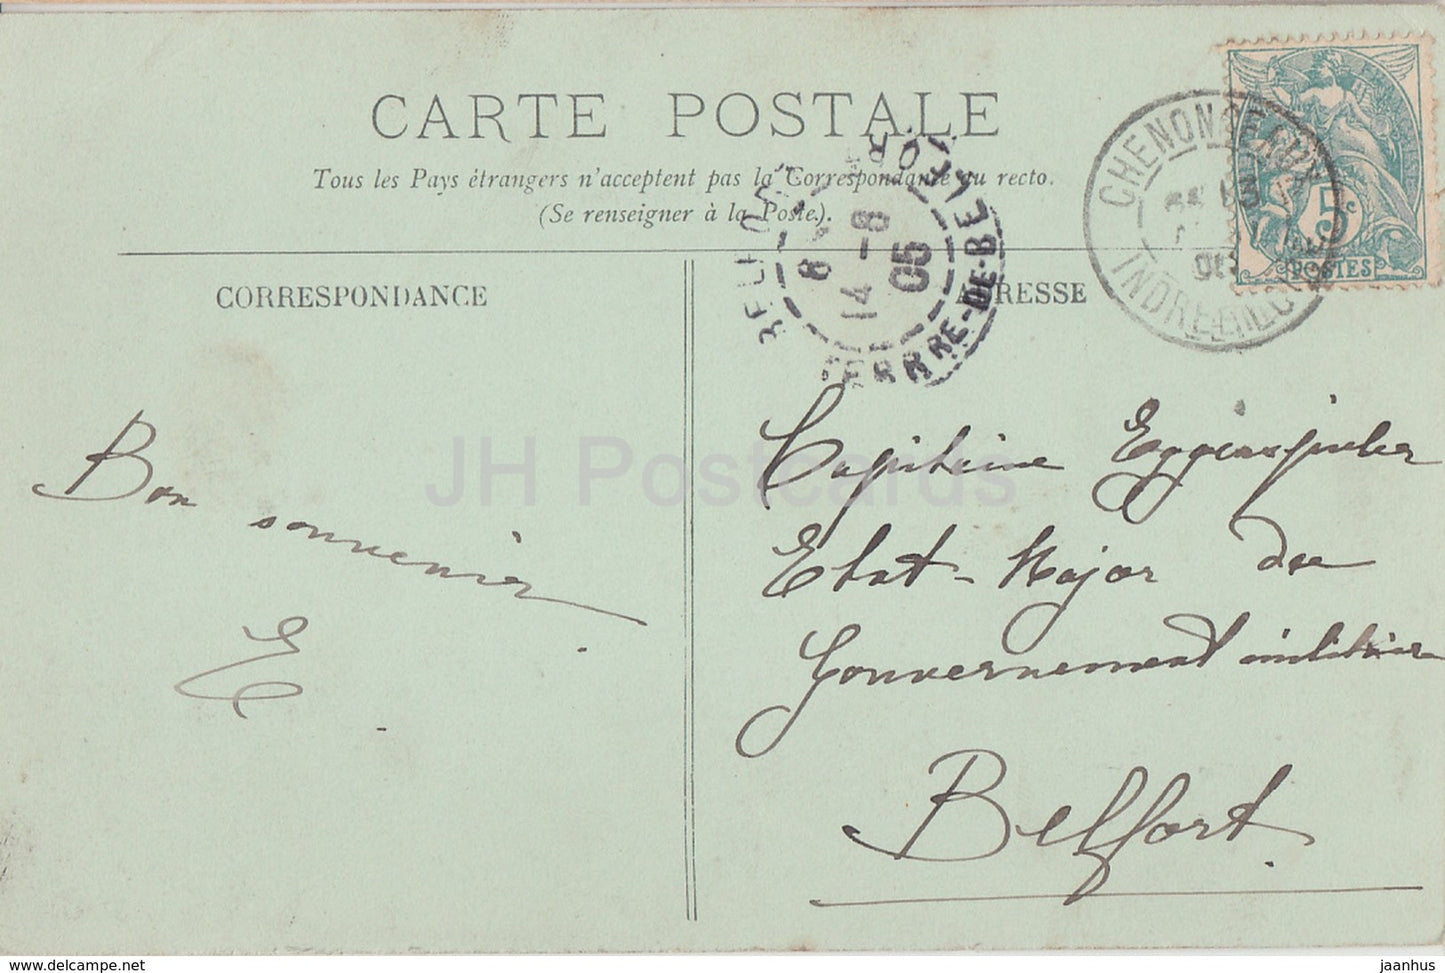 CARTE POSTALE
Tous les Pays étrangers n'acceptent pas la Correspondance au recto.
(Se renseigner à la Poste.)
CORRESPONDANCE
ADRESSE
CHENONCEAUX
INDRE-ET-LOIRE
5c
POSTES
BELFORT
8
14 - 8
05
TERRE-DE-BELFORT
Bon souvenir
E.
Capitaine
Etat-Major du
Gouvernement militaire
Belfort.
JH Postcards
www.delcampe.net
jaanhus